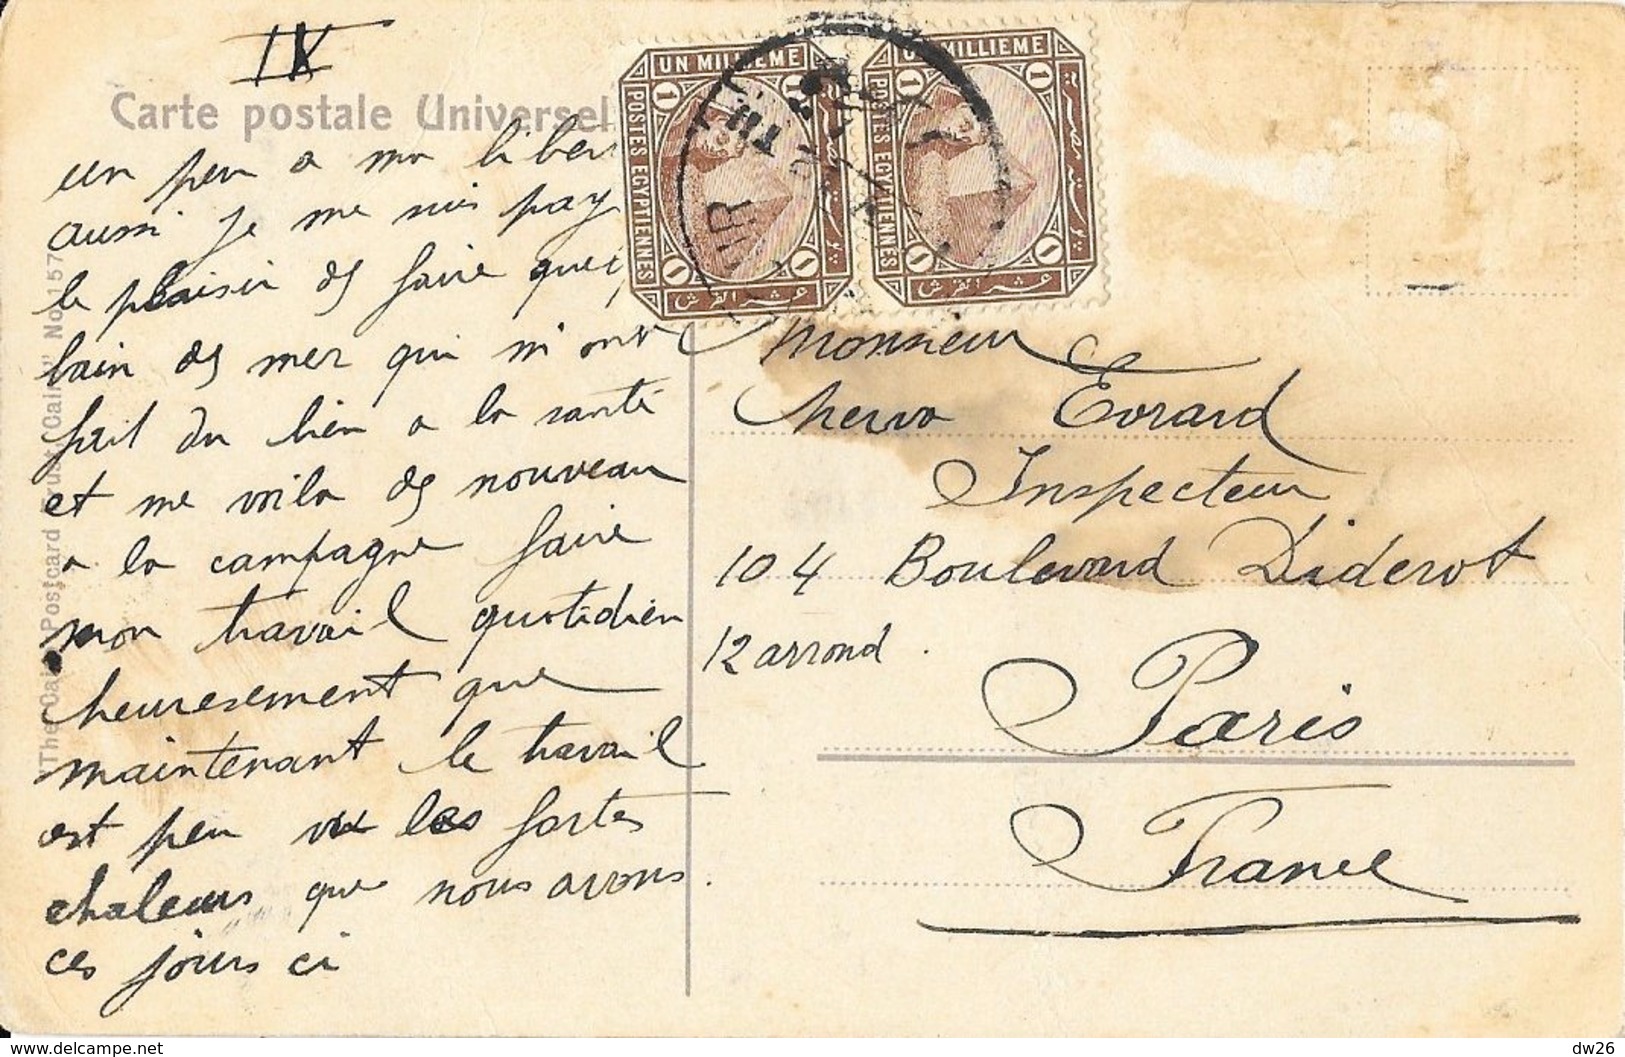 IX
Carte postale Universel
un peu a ma liber
aussi je me suis pay
le plaisir de faire quel
bain de mer qui m'ont
fait du bien a la santé
et me voila de nouveau
a la campagne faire
mon travail quotidien
heuresement que
maintenant le travail
est peu vu les fortes
chaleurs que nous avons
ces jours ci
"The Cairo Postcard Trust, Cairo" No. 157
UN MILLIEME
POSTES EGYPTIENNES
1
عشر القرش
UN MILLIEME
POSTES EGYPTIENNES
1
عشر القرش
Monsieur
Evrard
Inspecteur
104 Boulevard Diderot
12 arrond.
Paris
France
dw26
delcampe.net